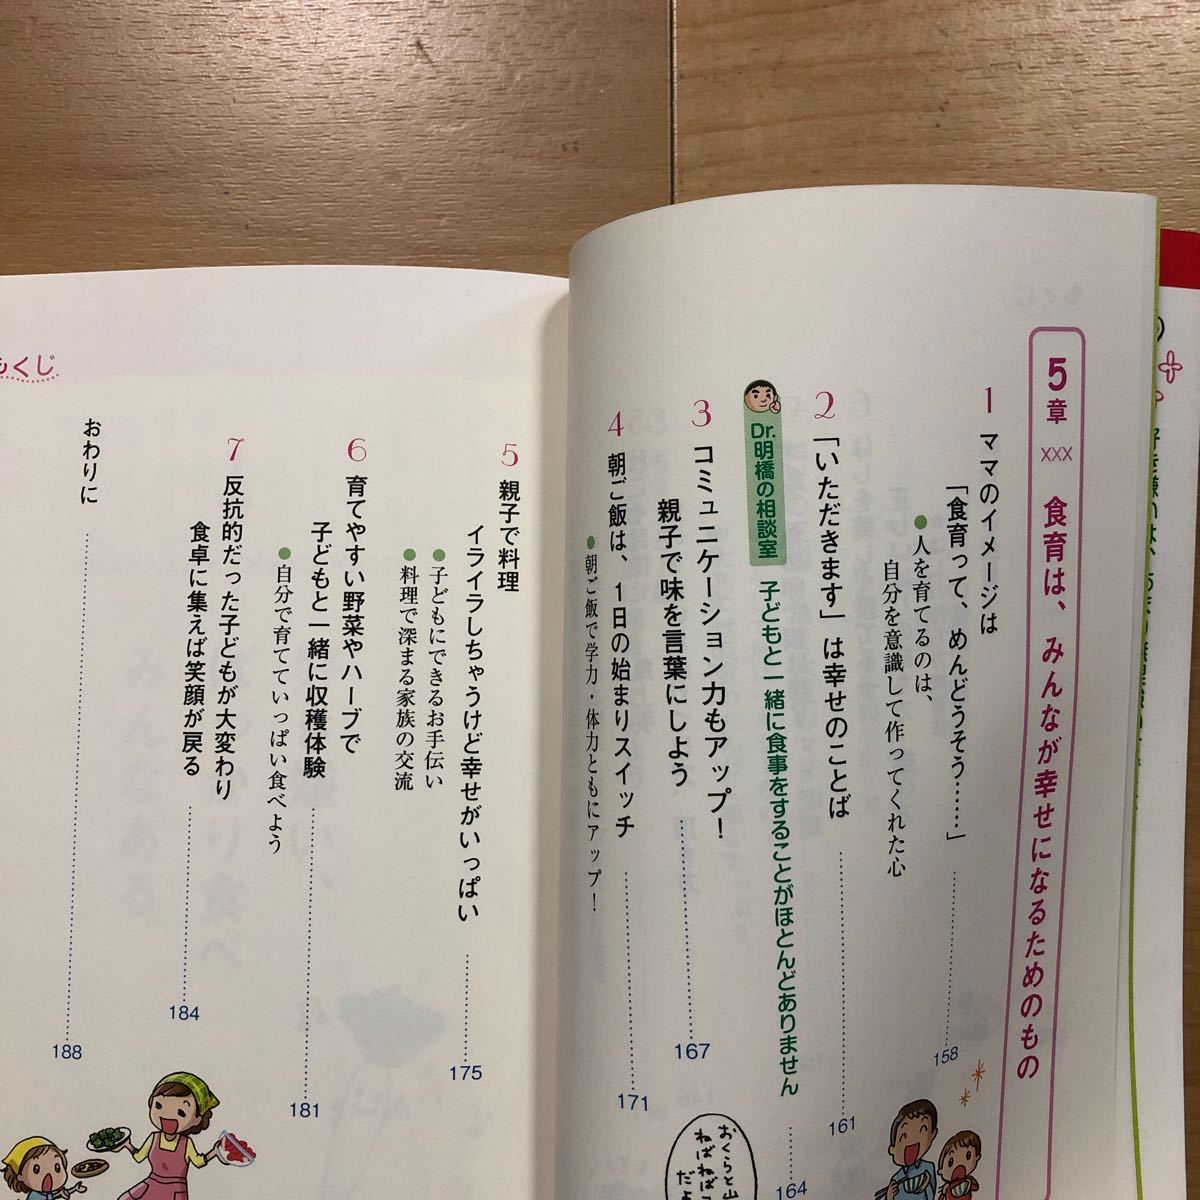 5章 xxx 食育は、みんなが幸せになるためのもの
1 ママのイメージは
「食育って、めんどうそう……」
158
●人を育てるのは、
自分を意識して作ってくれた心
2 「いただきます」は幸せのことば
161
Dr.明橋の相談室 子どもと一緒に食事をすることがほとんどありません
164
3 コミュニケーション力もアップ!
親子で味を言葉にしよう
167
4 朝ご飯は、1日の始まりスイッチ
171
●朝ご飯で学力・体力ともにアップ!
おくらと山
ねばねば
だよ
5 親子で料理
イライラしちゃうけど幸せがいっぱい
175
●子どもにできるお手伝い
●料理で深まる家族の交流
6 育てやすい野菜やハーブで
子どもと一緒に収穫体験
181
●自分で育てていっぱい食べよう
7 反抗的だった子どもが大変わり
食卓に集えば笑顔が戻る
184
おわりに
188
もくじ